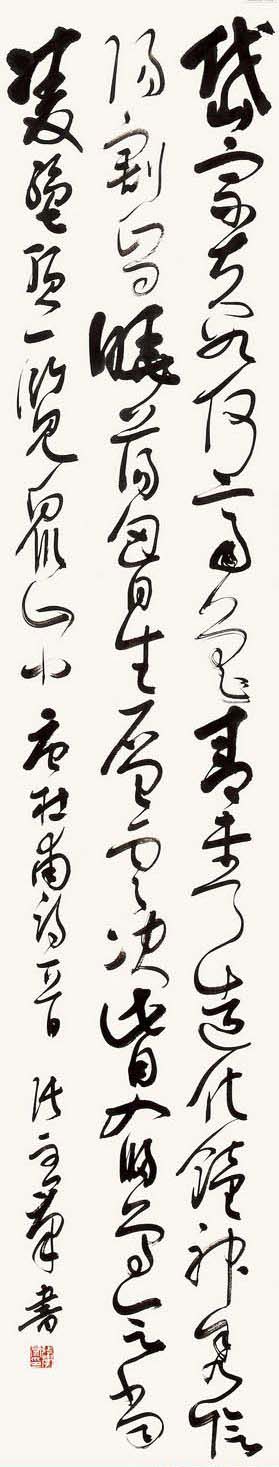 岱宗夫如何齊魯青未了造化鍾神秀陰
陽割昏曉蕩胸生層雲決眥入歸鳥會當
凌絕頂一覽眾山小 唐杜甫詩一首 張羣書